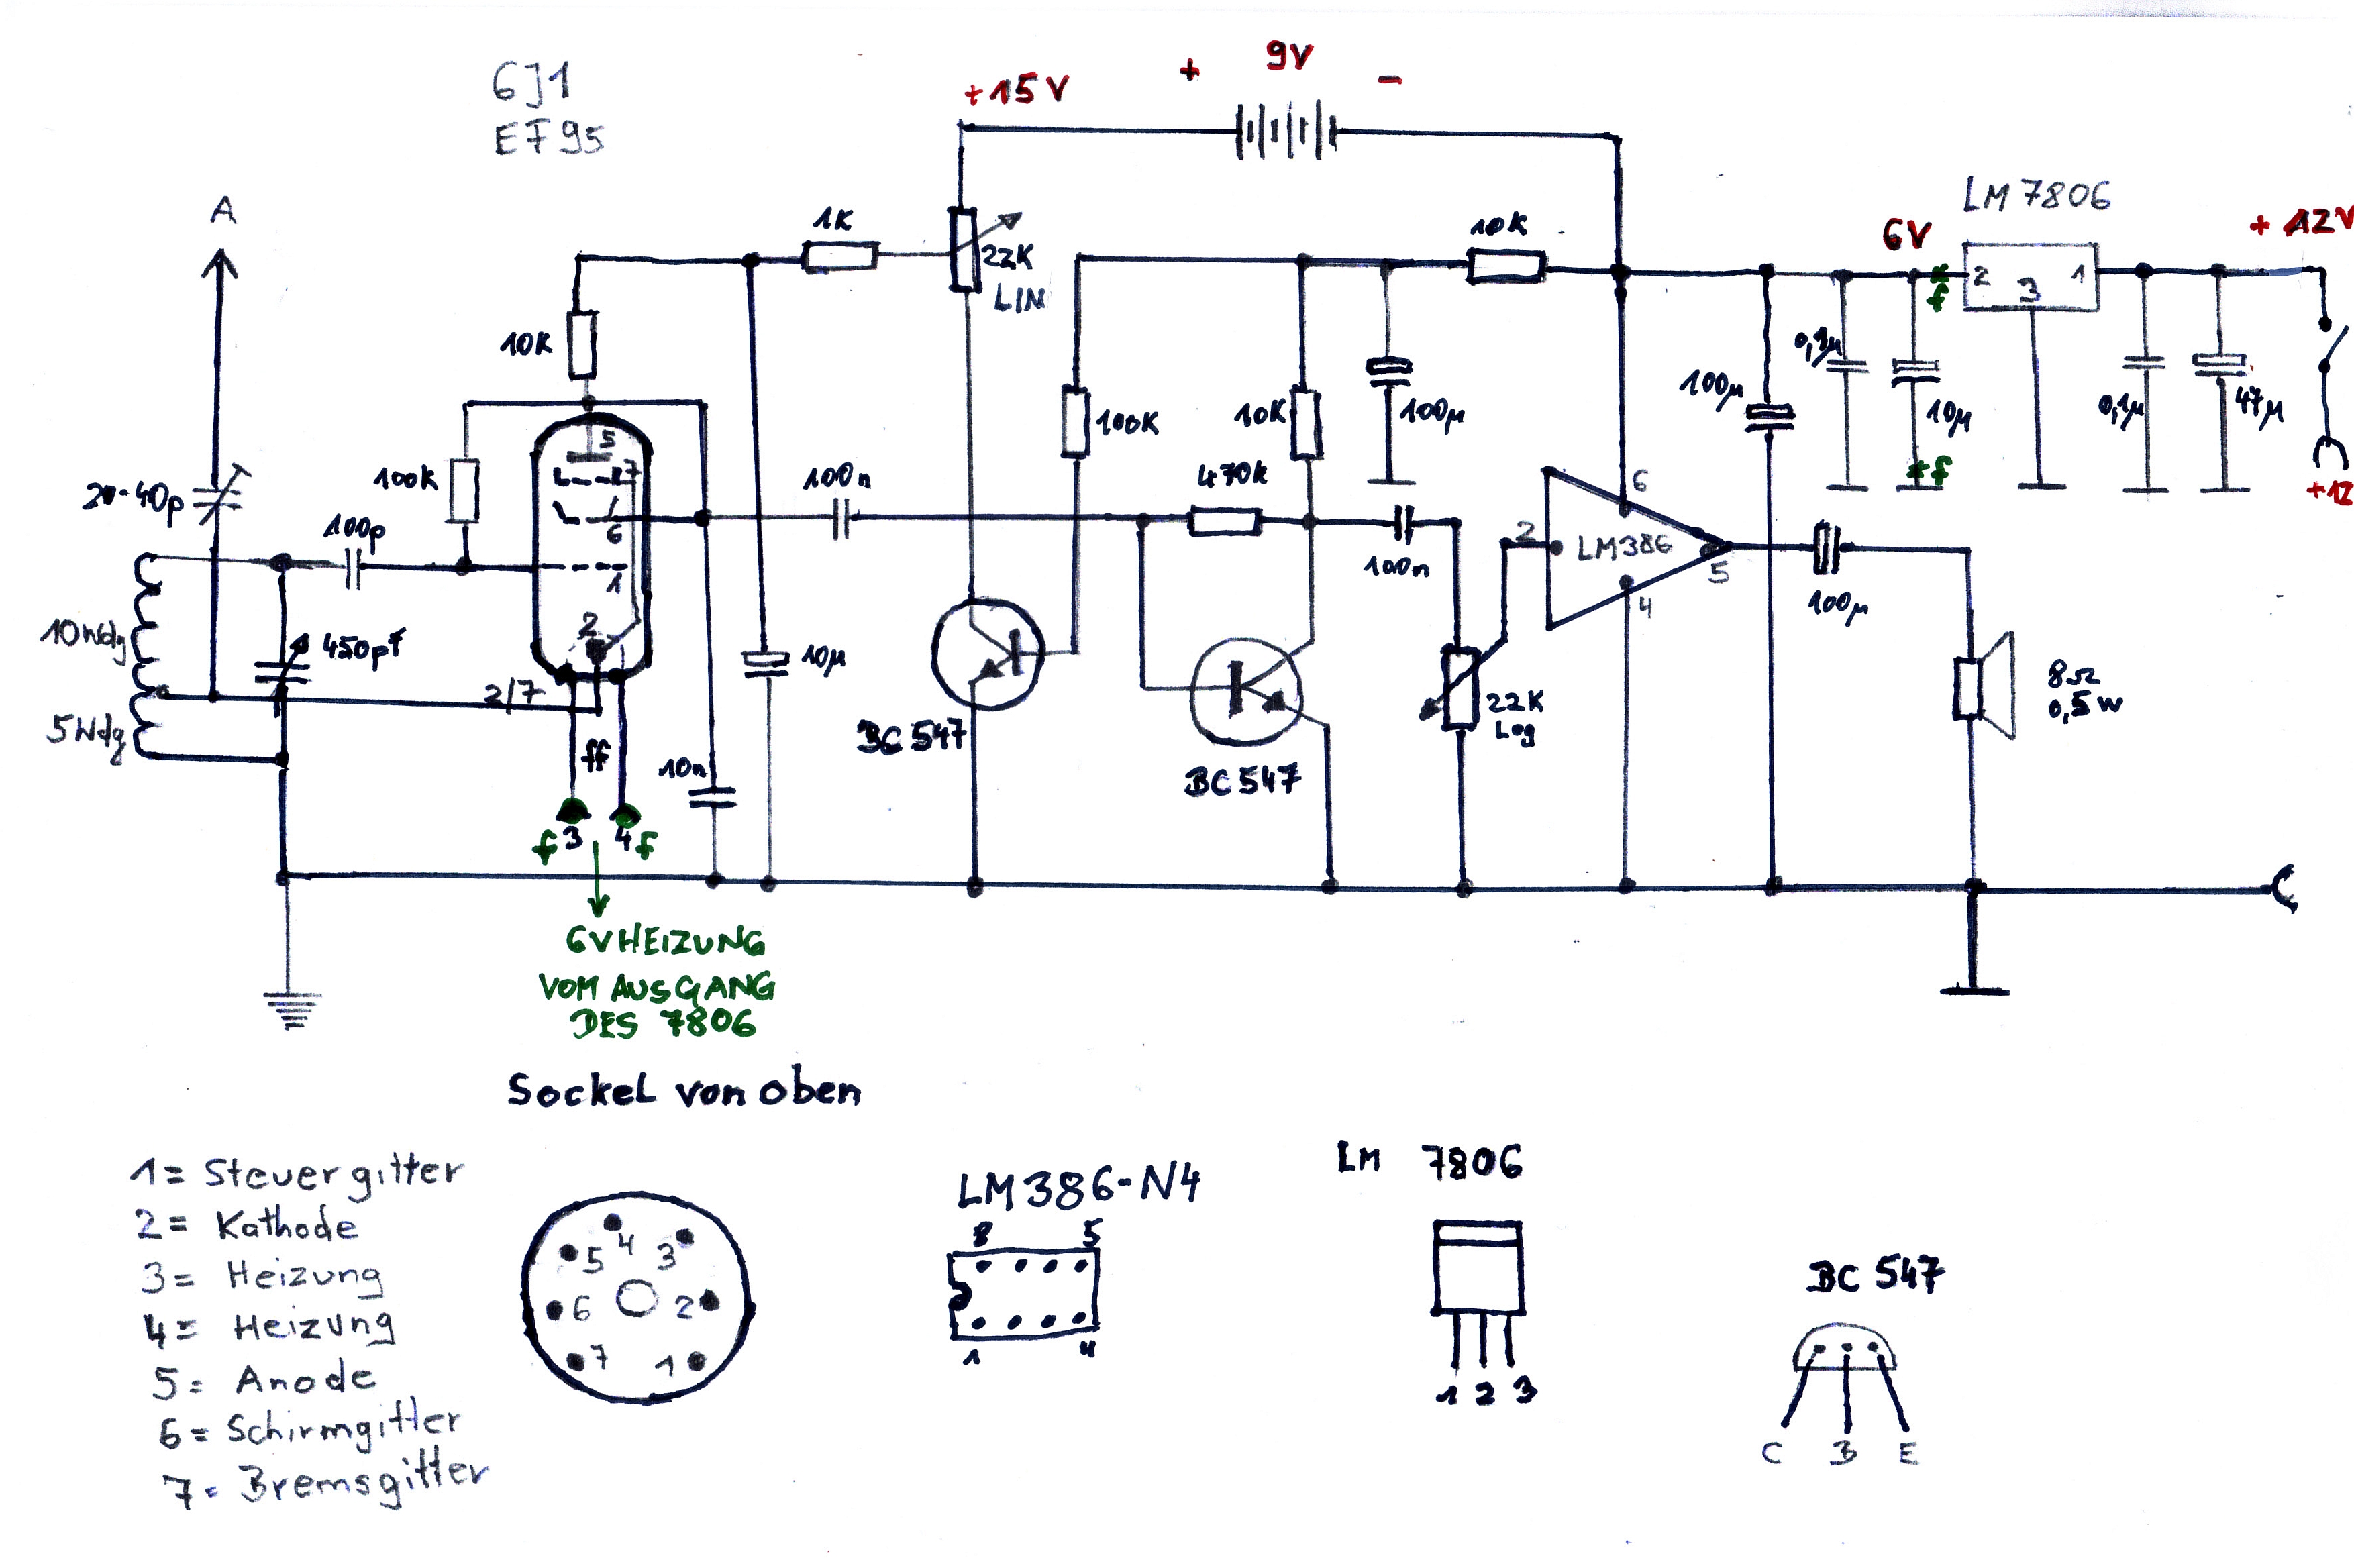 6J1
EF95
+15V
+ 9V -
A
1K
22K
LIN
10K
LM 7806
6V
+ 12V
2 3 1
f
10K
100K
20-40p
100p
5
7
6
1
2
100n
100K
10K
470K
100µ
100n
100µ
0,1µ
10µ
*f
0,1µ
47µ
+12
6
2 LM386
5
4
100µ
10Wdg
450pF
5Wdg
2/7
ff
10n
10µ
BC 547
BC 547
22K
Log
8Ω
0,5W
f 3 4 f
6V HEIZUNG
VOM AUSGANG
DES 7806
Sockel von oben
1= Steuergitter
2= Kathode
3= Heizung
4= Heizung
5= Anode
6= Schirmgitter
7= Bremsgitter
5 4 3
6 2
7 1
LM386-N4
8 5
1 4
LM 7806
1 2 3
BC 547
C B E